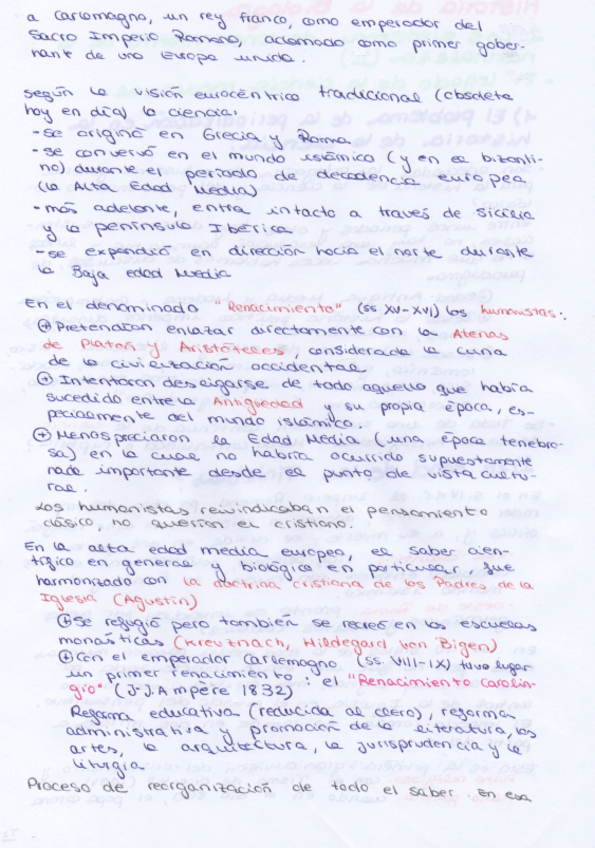 a Carlomagno, un rey franco, como emperador del
Sacro Imperio Romano, aclamado como primer gober-
nante de una Europa unida.
Según la visión eurocéntrica tradicional (obsoleta
hoy en día) la ciencia:
-se originó en Grecia y Roma
-se conservó en el mundo islámico (y en el bizanti-
no) durante el período de decadencia europea
(la Alta Edad Media)
-más adelante, entra intacto a través de Sicilia
y la península Ibérica
-se expandió en dirección hacia el norte durante
la Baja edad Media
En el denominado "Renacimiento" (ss. XV-XVI) los humanistas:
Pretendían enlazar directamente con la Atenas
de Platón y Aristóteles, considerada la cuna
de la civilización occidental
Intentaron desligarse de todo aquello que había
sucedido entre la Antigüedad y su propia época, es-
pecialmente del mundo islámico.
Menospreciaron la Edad Media (una época tenebro-
sa) en la cual no habría ocurrido supuestamente
nada importante desde el punto de vista cultu-
ral.
Los humanistas reivindicaban el pensamiento
clásico, no querían el cristiano.
En la alta edad media europea, el saber cien-
tífico en general y biológico en particular, fue
harmonizado con la doctrina cristiana de los Padres de la
Iglesia (Agustín)
Se refugió pero también se recreó en las escuelas
monásticas (Kreuznach, Hildegard von Bigen)
Con el emperador Carlomagno (ss. VIII-IX) tuvo lugar
un primer renacimiento: el "Renacimiento carolin-
gio" (J-J. Ampère 1832)
Reforma educativa (reducida al clero), reforma
administrativa y promoción de la literatura, las
artes, la arquitectura, la jurisprudencia y la
liturgia
Proceso de reorganización de todo el saber. En esa